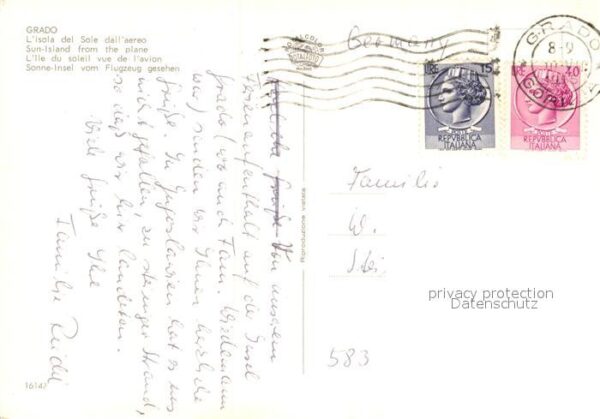 GRADO
L'Isola del Sole dall'aereo
Sun-Island from the plane
L'Ile du soleil vue de l'avion
Sonne-Insel vom Flugzeug gesehen
Germany
GRADO
8-9
GORI
15
40
REPVBBLICA
ITALIANA
REPVBBLICA
ITALIANA
Von unserem
Ferienaufenthalt auf der Insel
Grado (wo auch Fam. Wiedemann
war) senden wir Ihnen herzliche
Grüße. In Jugoslawien hat es uns
nicht gefallen, zu steiniger Strand,
so daß wir hier landeten.
Viele Grüße Ihre
Familie Riedel
Familie
W.
583
16147
privacy protection
Datenschutz